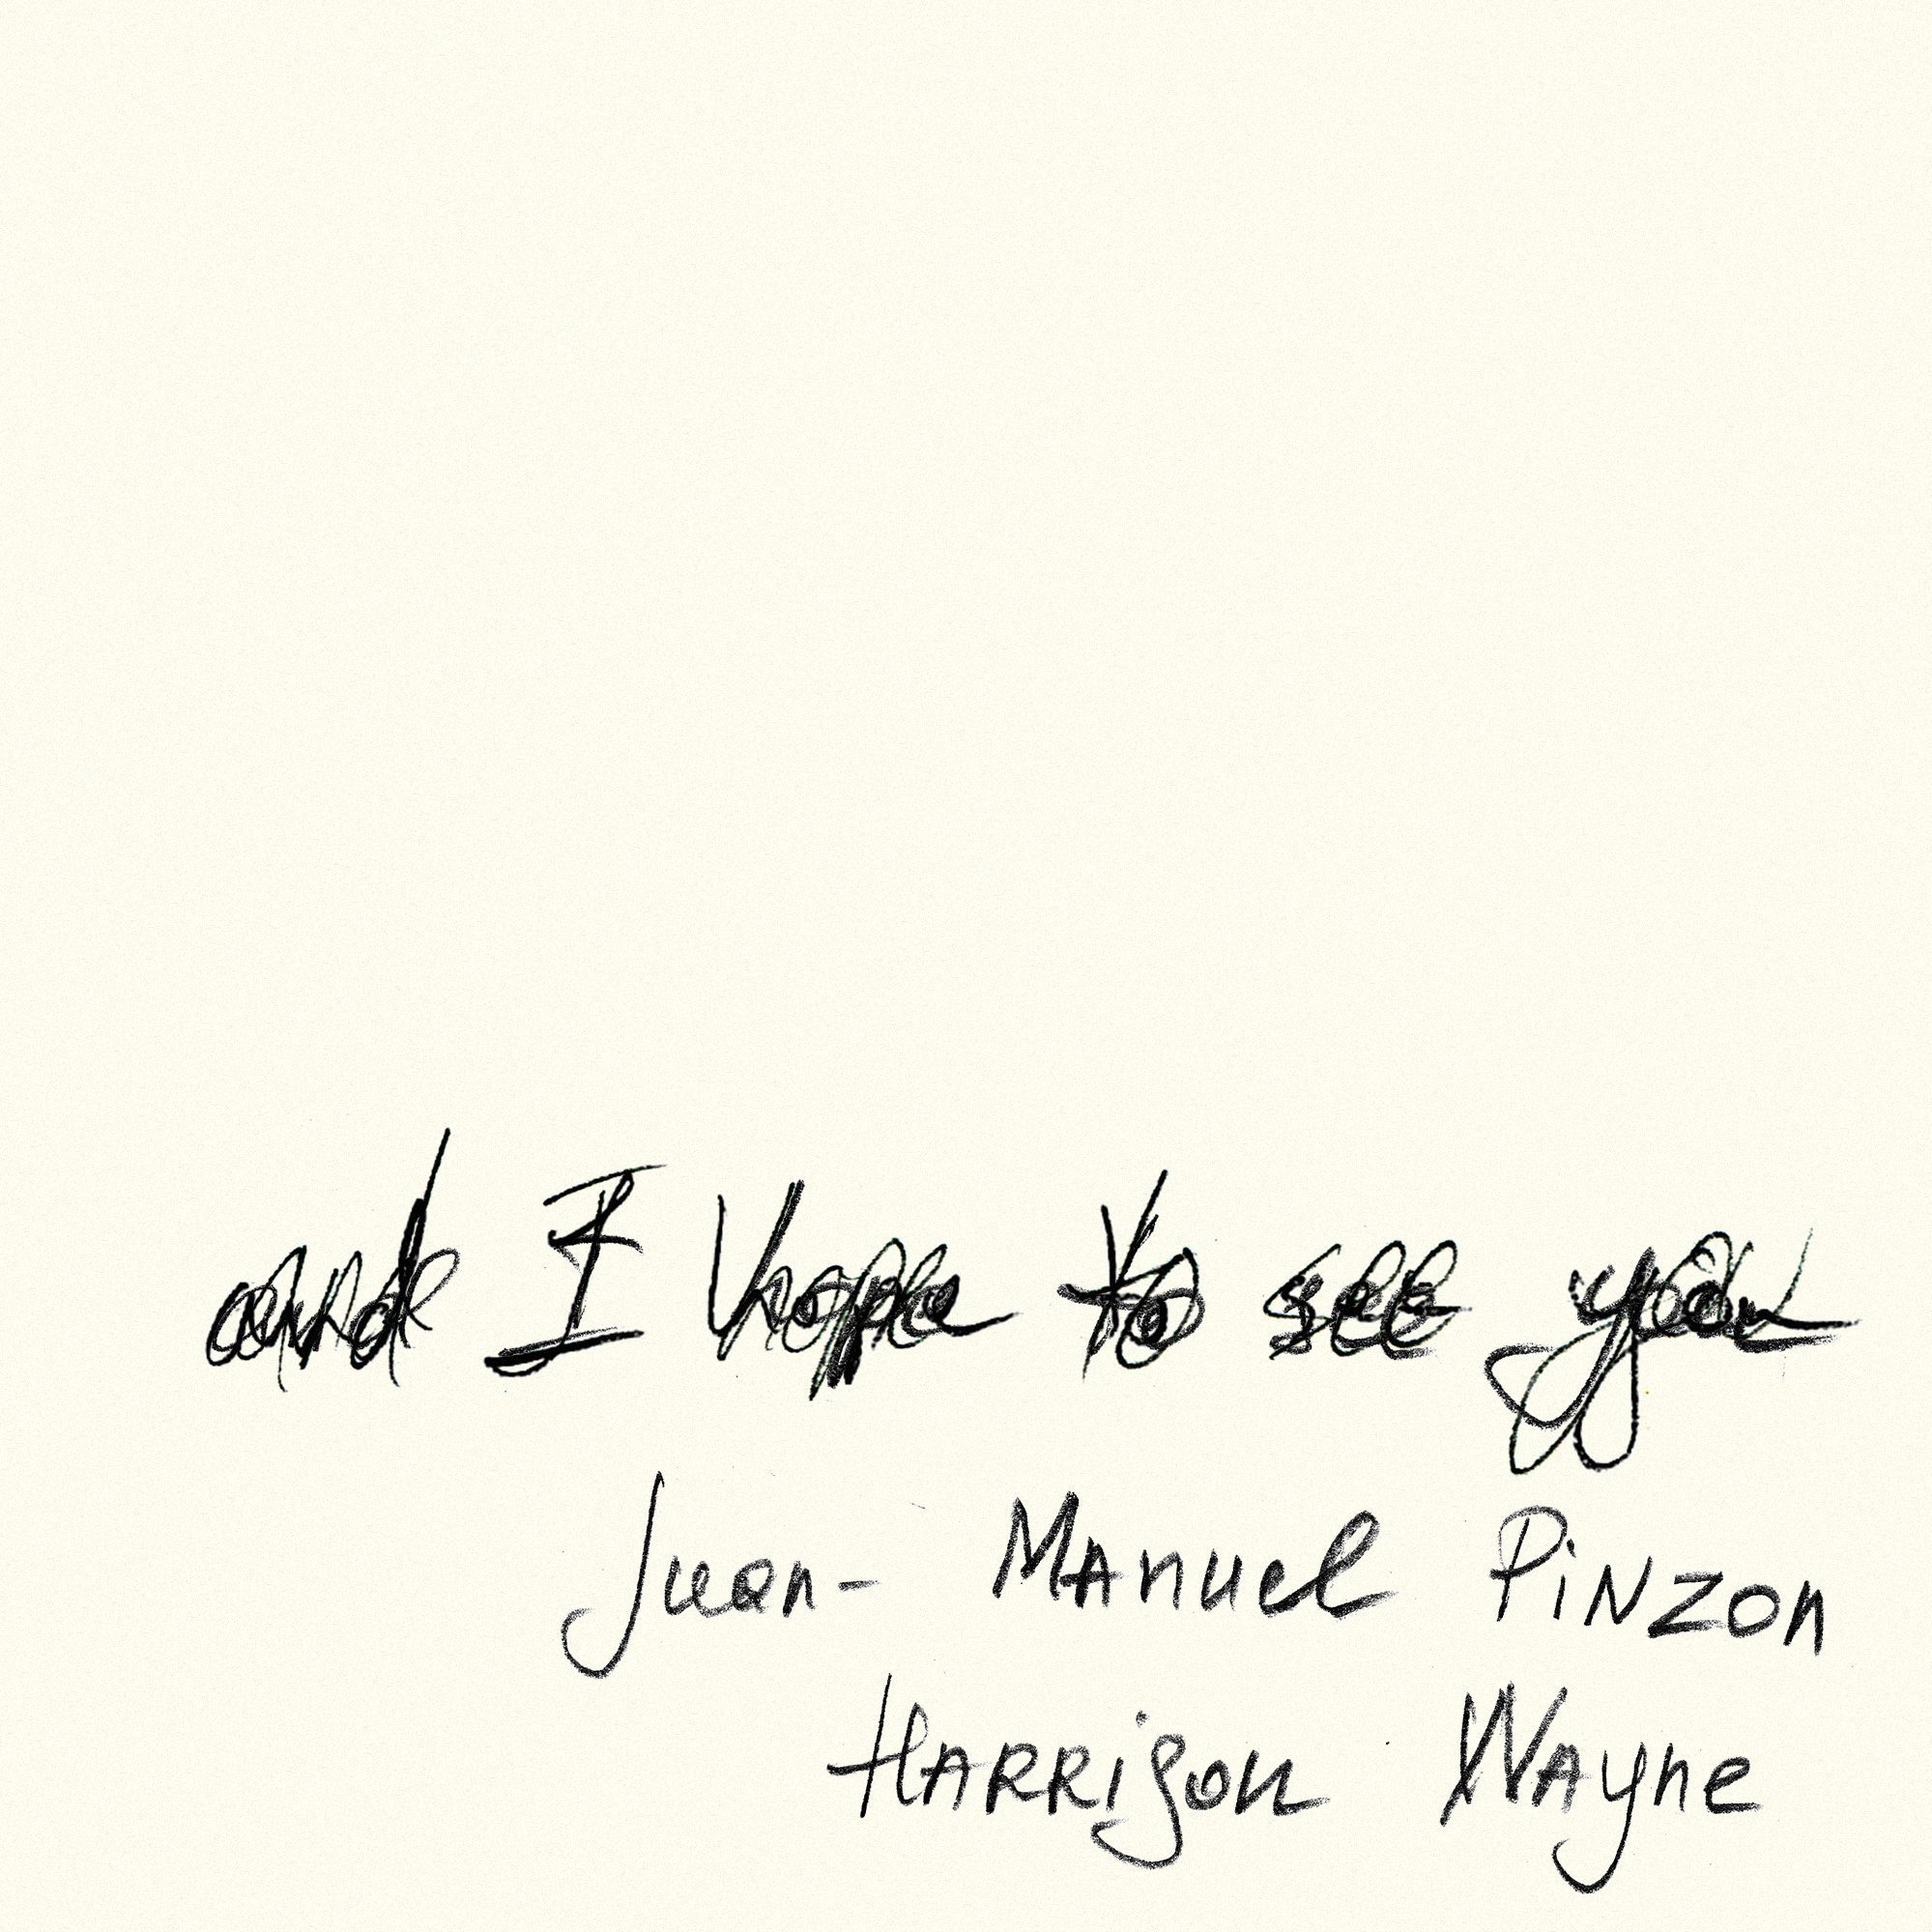 and I hope to see you
Juan- Manuel Pinzon
Harrison Wayne